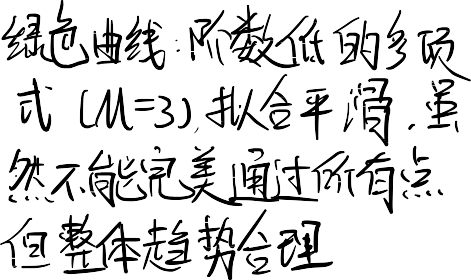 绿色曲线：阶数低的多项
式（M=3），拟合平滑，虽
然不能完美通过所有点
但整体趋势合理